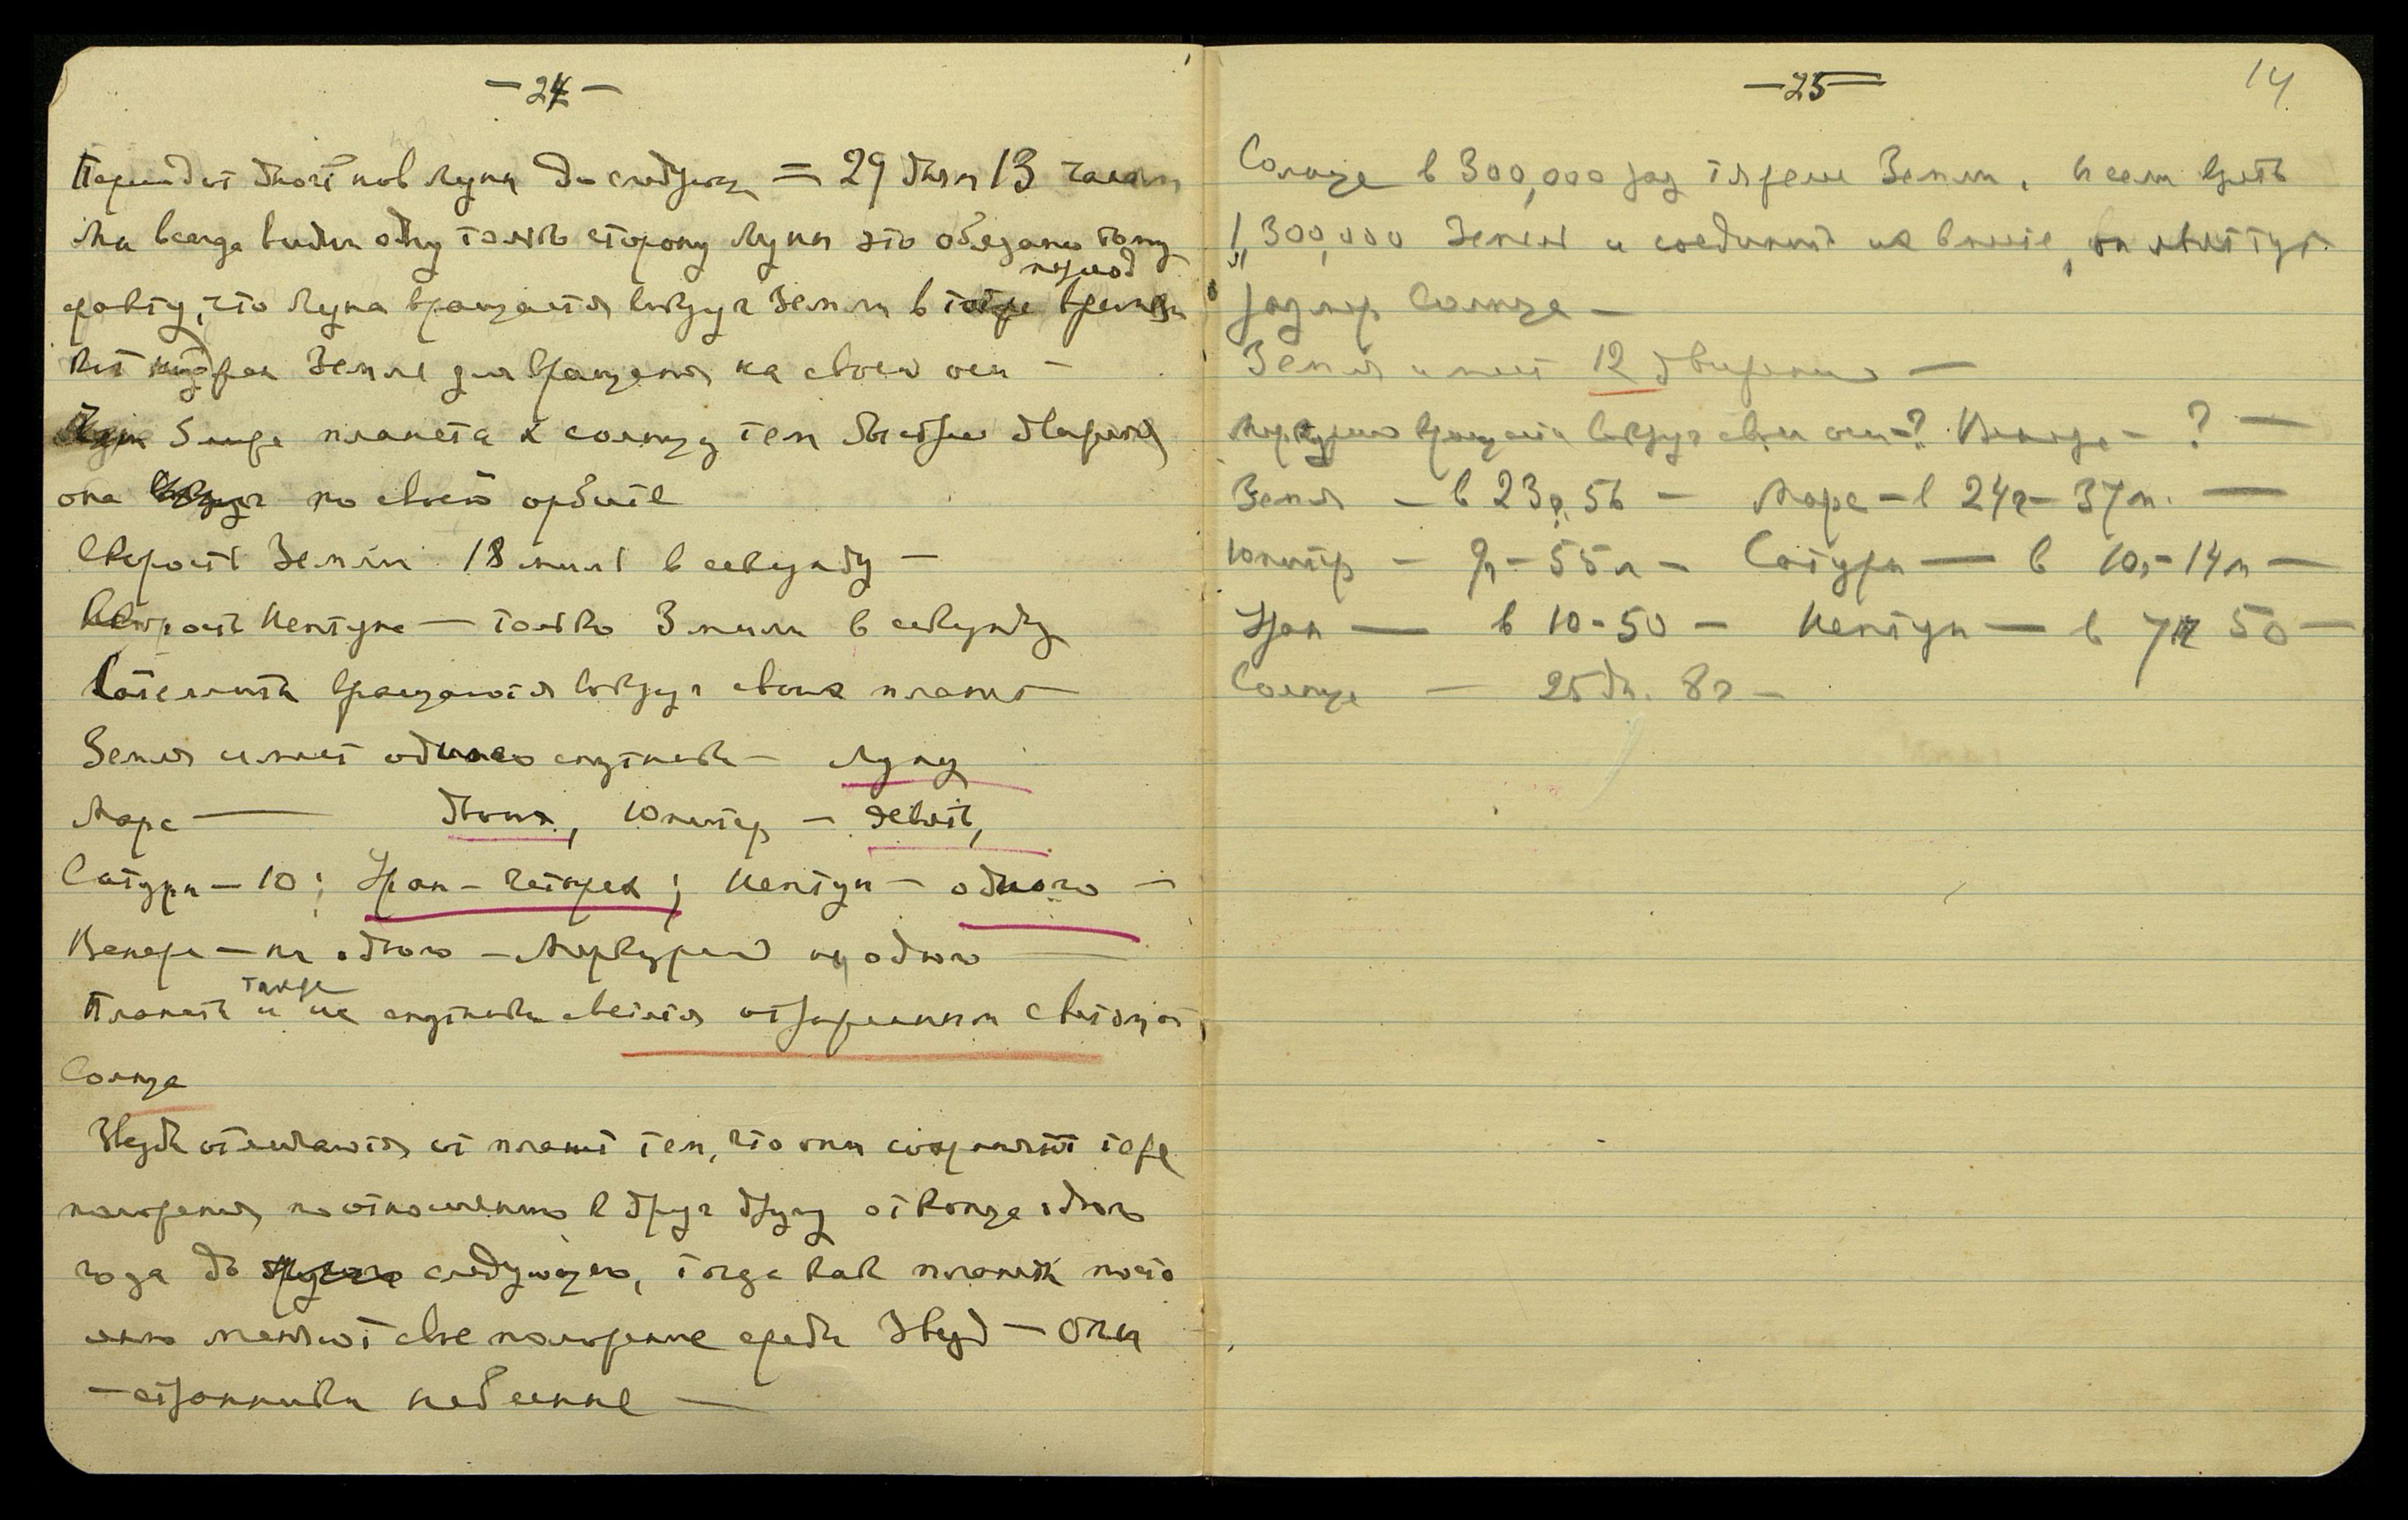 — 24 —
Период от одной нов луны до следующ = 29 дням 13 часам
Мы всегда видим одну только сторону луны это обязано тому
период
факту, что луна вращается вокруг Земли в тотже время
Земле для вращения на своей оси —
Чем ближе планета к солнцу тем быстрее движется
она вокруг по своей орбите
Скорость Земли 18 миль в секунду —
Скорость Нептуна — только 3 мили в секунду
Сателиты вращаются вокруг своих планет —
Земля имеет одного спутника — Луну
Марс — двоих, Юпитер — девять,
Сатурн — 10; Уран — четырех; Нептун — одного —
Венера — ни одного — Меркурий ни одного —
также
Планеты и их спутники светятся отраженным светом от
Солнца
Звезды отличаются от планет тем, что они сохраняют те же
положения по отношению к друг другу от конца одного
года до другого следующего, тогда как планеты посто
янно меняют свое положение среди Звезд — они
— странники небесные —
— 25 —
14
Солнце в 300,000 раз тяжеле Земли. И если взять
1,300,000 Земель и соединить их вместе, он
размер Солнца —
Земля имеет 12 движений —
Меркурий вращается вокруг своей оси — ? Венера — ? —
Земля — в 23 ч. 56 — Марс — в 24 ч — 37 м. —
Юпитер — 9 ч — 55 м — Сатурн — в 10 ч — 14 м —
Уран — в 10 - 50 — Нептун — в 7 ч 50 —
Солнце — 25 дн. 8 ч —